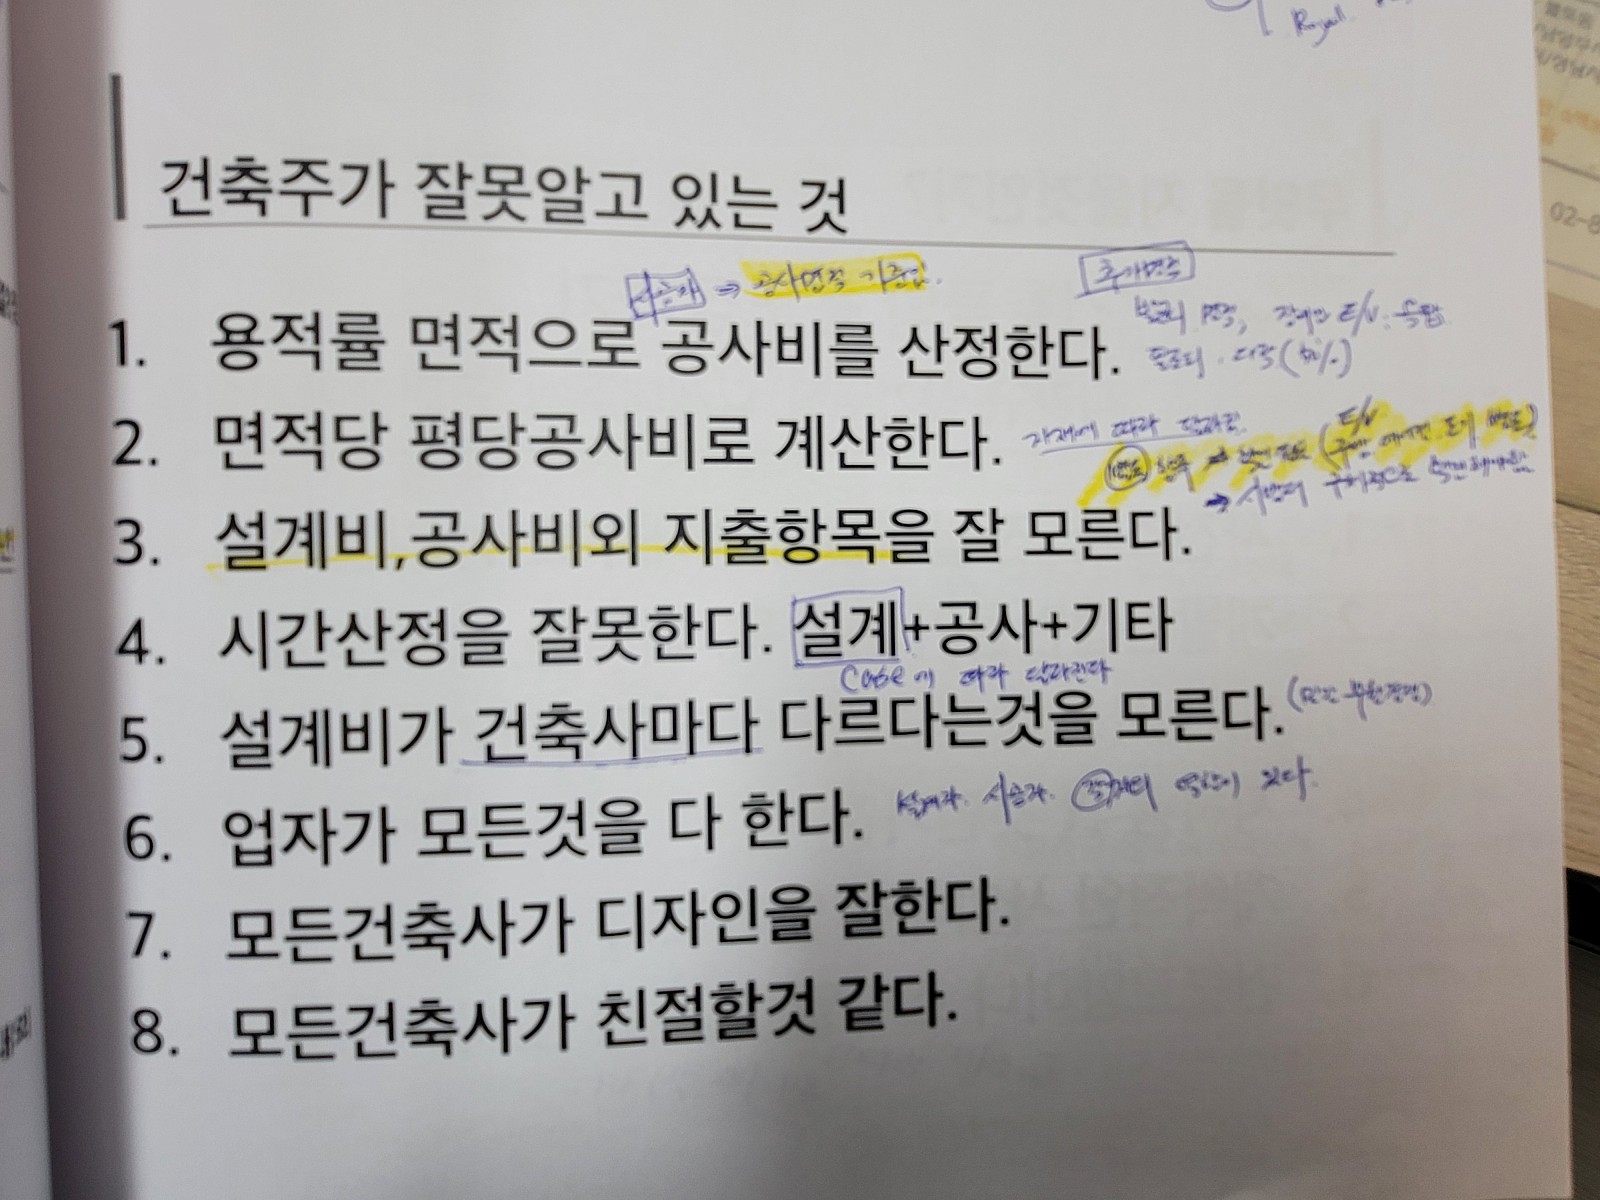 Royal.
건축주가 잘못알고 있는 것
시공자 → 공사면적 기준임.
추가면적
1. 용적률 면적으로 공사비를 산정한다.
발코니 면적, 장애인 E/V. 옥탑
필로티. 다락(
2. 면적당 평당공사비로 계산한다.
자재에 따라 달라짐.
별도 항목 → E/V
→ 시방서 구체적으로 확인해야함
3. 설계비,공사비외 지출항목을 잘 모른다.
4. 시간산정을 잘못한다. 설계+공사+기타
Case에 따라 달라진다
5. 설계비가 건축사마다 다르다는것을 모른다.
6. 업자가 모든것을 다 한다.
설계자. 시공자. 각자의 역할이 있다.
7. 모든건축사가 디자인을 잘한다.
8. 모든건축사가 친절할것 같다.
02-8